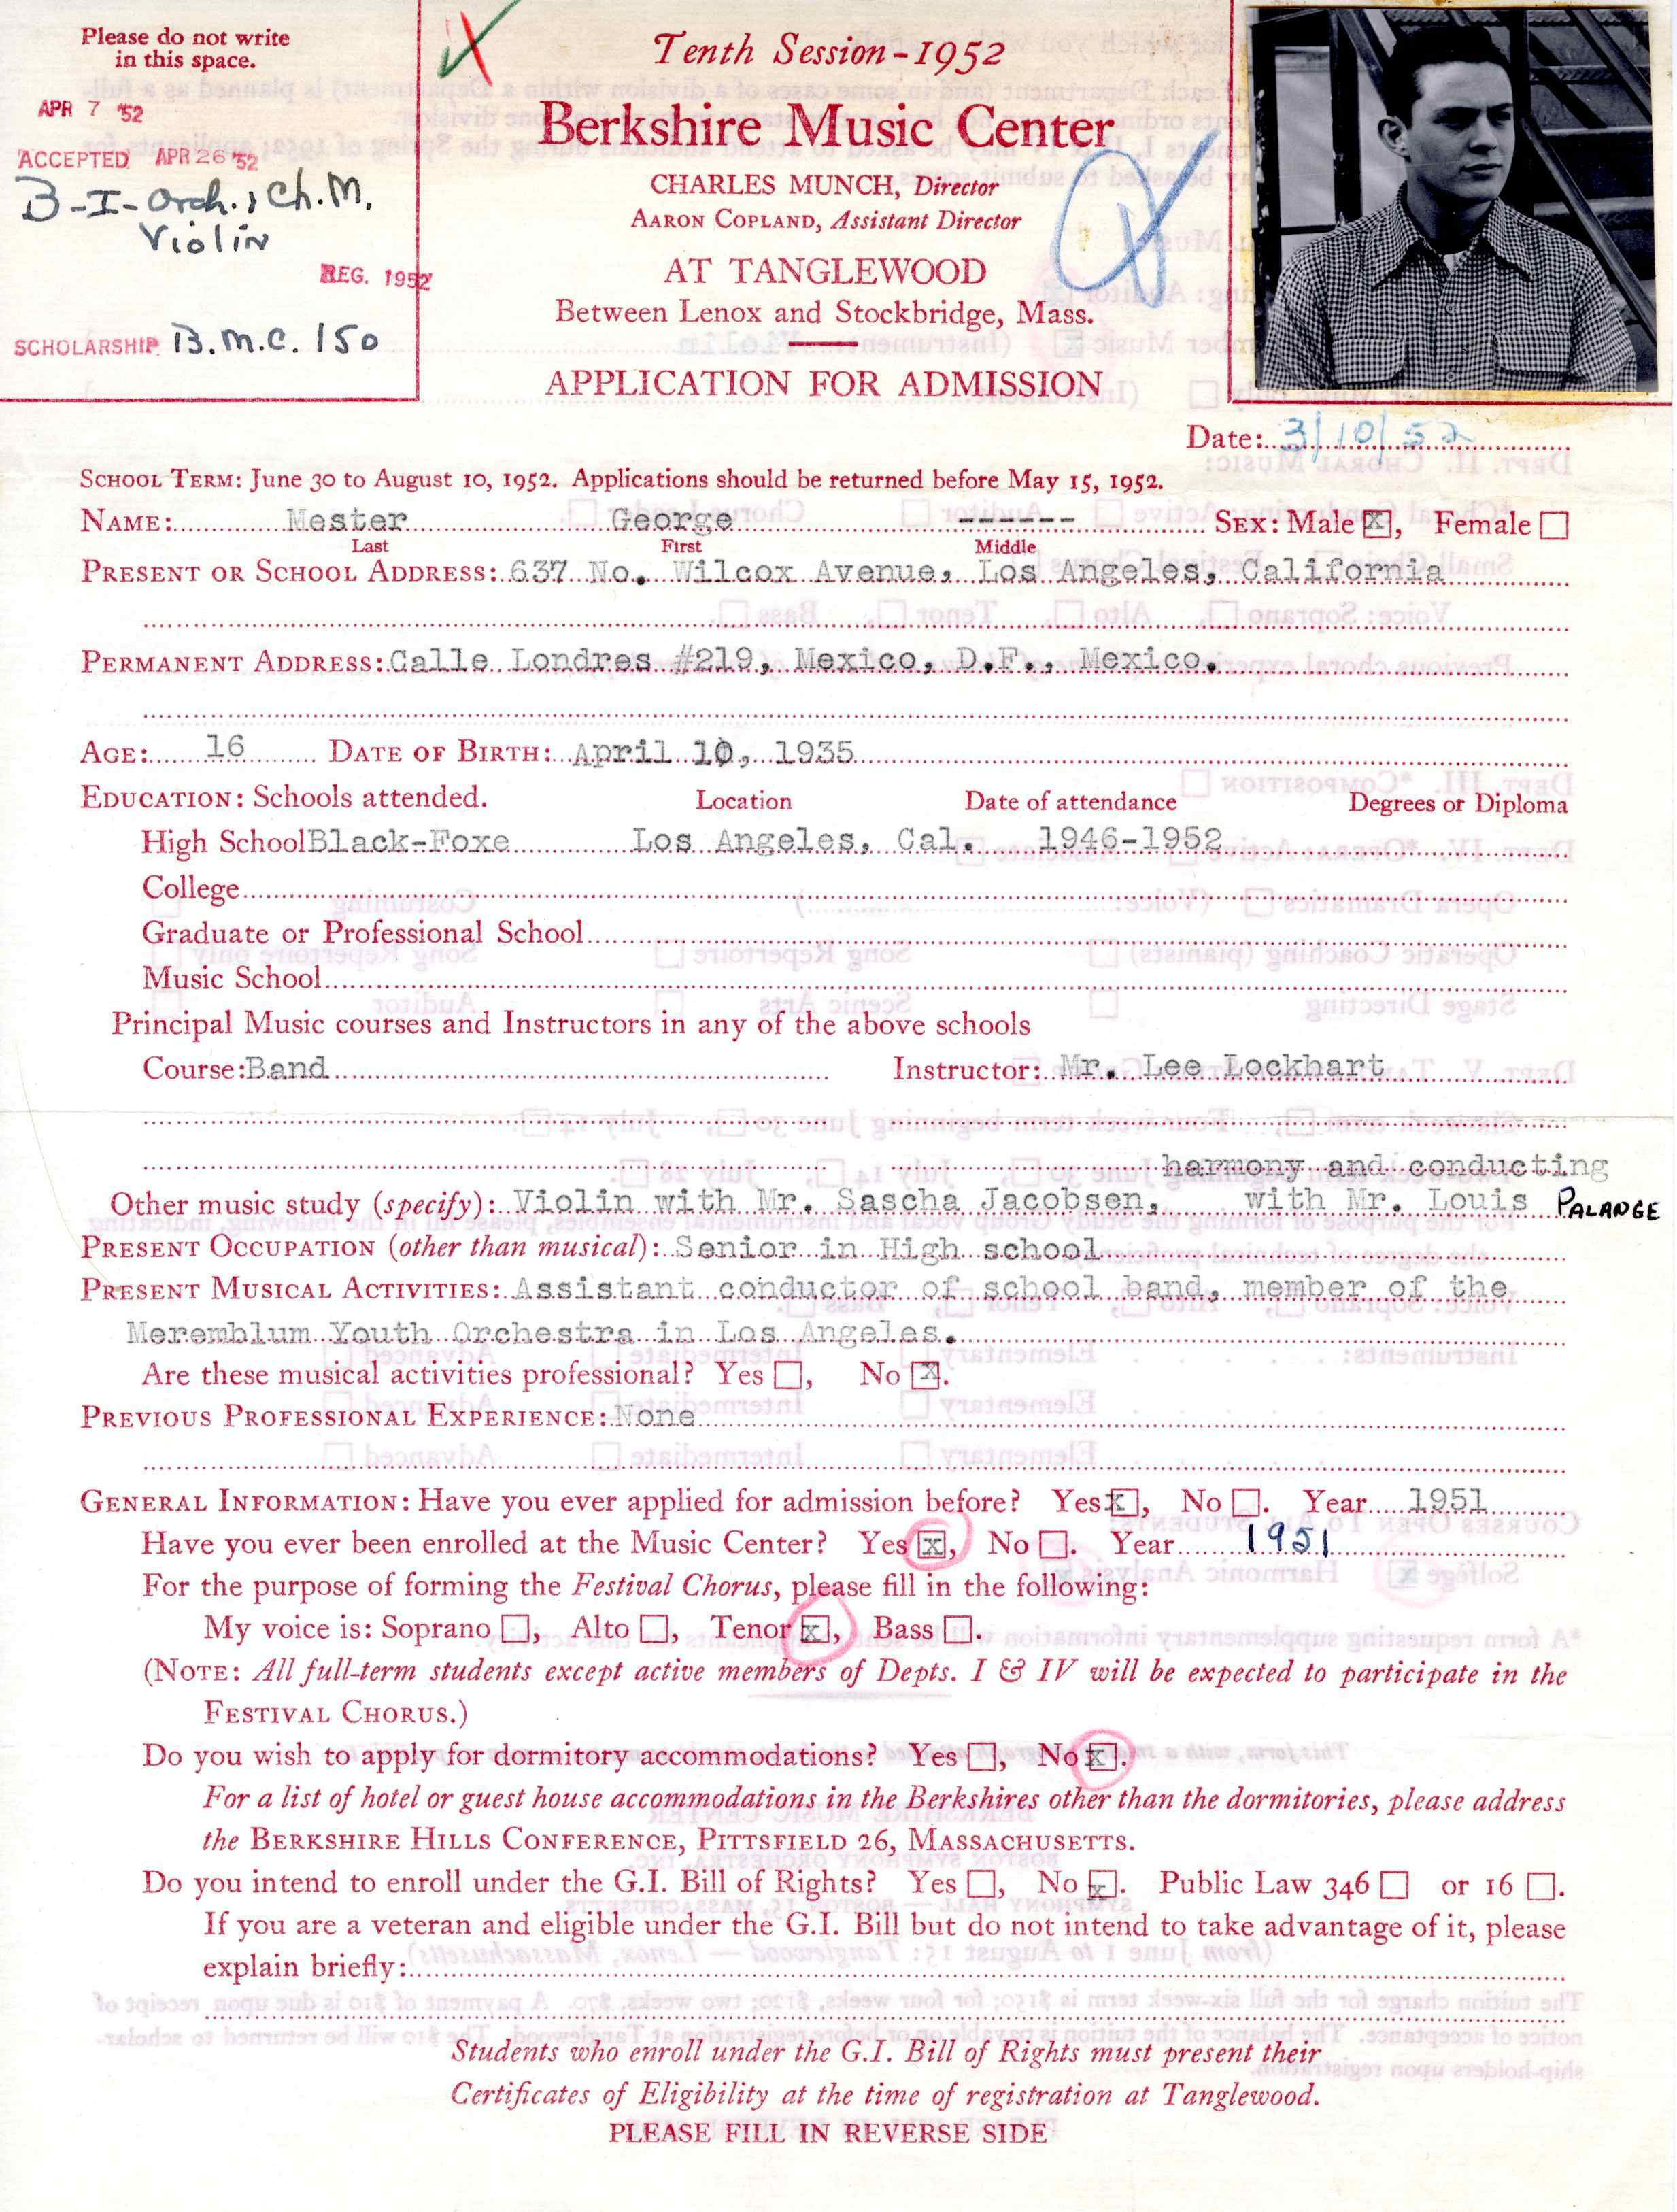 Please do not write
in this space.
APR 7 '52
ACCEPTED APR 26 '52
B-I-Orch., Ch.M.
Violin
REG. 1952
SCHOLARSHIP B.M.C. 150
Tenth Session-1952
Berkshire Music Center
CHARLES MUNCH, Director
AARON COPLAND, Assistant Director
AT TANGLEWOOD
Between Lenox and Stockbridge, Mass.
APPLICATION FOR ADMISSION
Date: 3/10/52
SCHOOL TERM: June 30 to August 10, 1952. Applications should be returned before May 15, 1952.
NAME: Mester George ------ SEX: Male [x], Female
Last First Middle
PRESENT OR SCHOOL ADDRESS: 637 No. Wilcox Avenue, Los Angeles, California
PERMANENT ADDRESS: Calle Londres #219, Mexico, D.F., Mexico.
AGE: 16 DATE OF BIRTH: April 10, 1935
EDUCATION: Schools attended. Location Date of attendance Degrees or Diploma
High School Black-Foxe Los Angeles, Cal. 1946-1952
College
Graduate or Professional School
Music School
Principal Music courses and Instructors in any of the above schools
Course: Band Instructor: Mr. Lee Lockhart
harmony and conducting
Other music study (specify): Violin with Mr. Sascha Jacobsen, with Mr. Louis PALANGE
PRESENT OCCUPATION (other than musical): Senior in High school
PRESENT MUSICAL ACTIVITIES: Assistant conductor of school band, member of the
Meremblum Youth Orchestra in Los Angeles.
Are these musical activities professional? Yes , No [x].
PREVIOUS PROFESSIONAL EXPERIENCE: None
GENERAL INFORMATION: Have you ever applied for admission before? Yes [x], No . Year 1951
Have you ever been enrolled at the Music Center? Yes [x], No . Year 1951
For the purpose of forming the Festival Chorus, please fill in the following:
My voice is: Soprano , Alto , Tenor [x], Bass .
(NOTE: All full-term students except active members of Depts. I & IV will be expected to participate in the
FESTIVAL CHORUS.)
Do you wish to apply for dormitory accommodations? Yes , No [x].
For a list of hotel or guest house accommodations in the Berkshires other than the dormitories, please address
the BERKSHIRE HILLS CONFERENCE, PITTSFIELD 26, MASSACHUSETTS.
Do you intend to enroll under the G.I. Bill of Rights? Yes , No [x]. Public Law 346 or 16 .
If you are a veteran and eligible under the G.I. Bill but do not intend to take advantage of it, please
explain briefly:
Students who enroll under the G.I. Bill of Rights must present their
Certificates of Eligibility at the time of registration at Tanglewood.
PLEASE FILL IN REVERSE SIDE